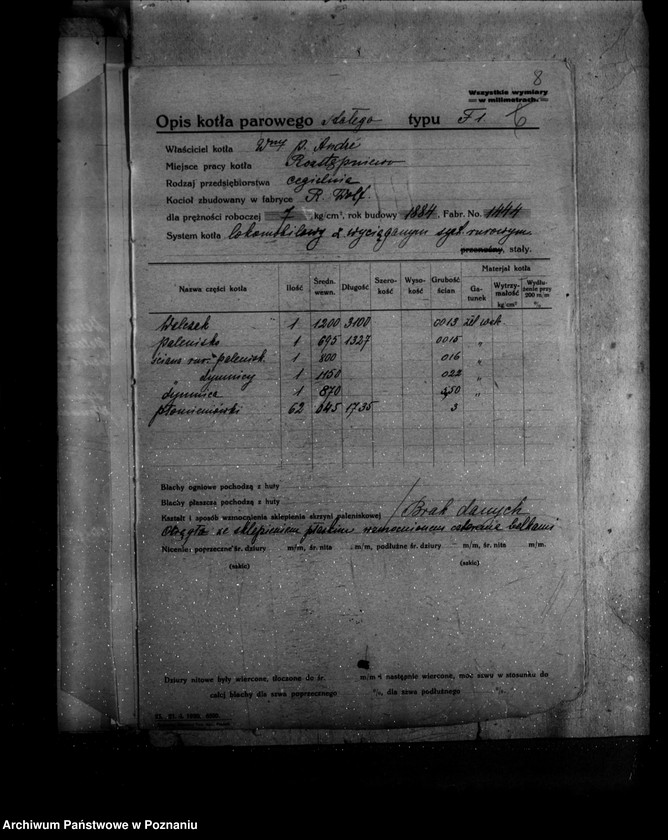 8
Wszystkie wymiary
w milimetrach.
Opis kotła parowego stałego typu F1
Właściciel kotła Wny p. André
Miejsce pracy kotła Rozstępniewo
Rodzaj przedsiębiorstwa cegielnia
Kocioł zbudowany w fabryce R. Wolf.
dla prężności roboczej 7 kg/cm², rok budowy 1884, Fabr. No. 1444
System kotła lokomobilowy z wyciąganym syst. rurowym
przenośny, stały.
Nazwa części kotła Ilość Średn. wewn. Długość Szerokość Wysokość Grubość ścian Materjał kotła
Gatunek Wytrzymałość kg/cm² Wydłużenie przy 200 m/m %
Walczak 1 1200 3100 0013
palenisko 1 695 1327 0015 "
ściana rur. palenisk. 1 800 016 "
dymnicy 1 1150 022 "
dymnica 1 870 "
płomieniówki 62 045 1735 3
Blachy ogniowe pochodzą z huty
Blachy płaszcza pochodzą z huty
Brak danych
Kształt i sposób wzmocnienia sklepienia skrzyni paleniskowej
Okrągła ze sklepieniem płaskim wzmocnionem czterema belkami
Nicenie: poprzeczne śr. dziury m/m, śr. nita m/m, podłużne śr. dziury m/m, śr. nita m/m.
(szkic) (szkic)
Dziury nitowe były wiercone, tłoczone do śr. m/m i następnie wiercone, moc szwu w stosunku do
całej blachy dla szwa poprzecznego %, dla szwa podłużnego %.
Archiwum Państwowe w Poznaniu